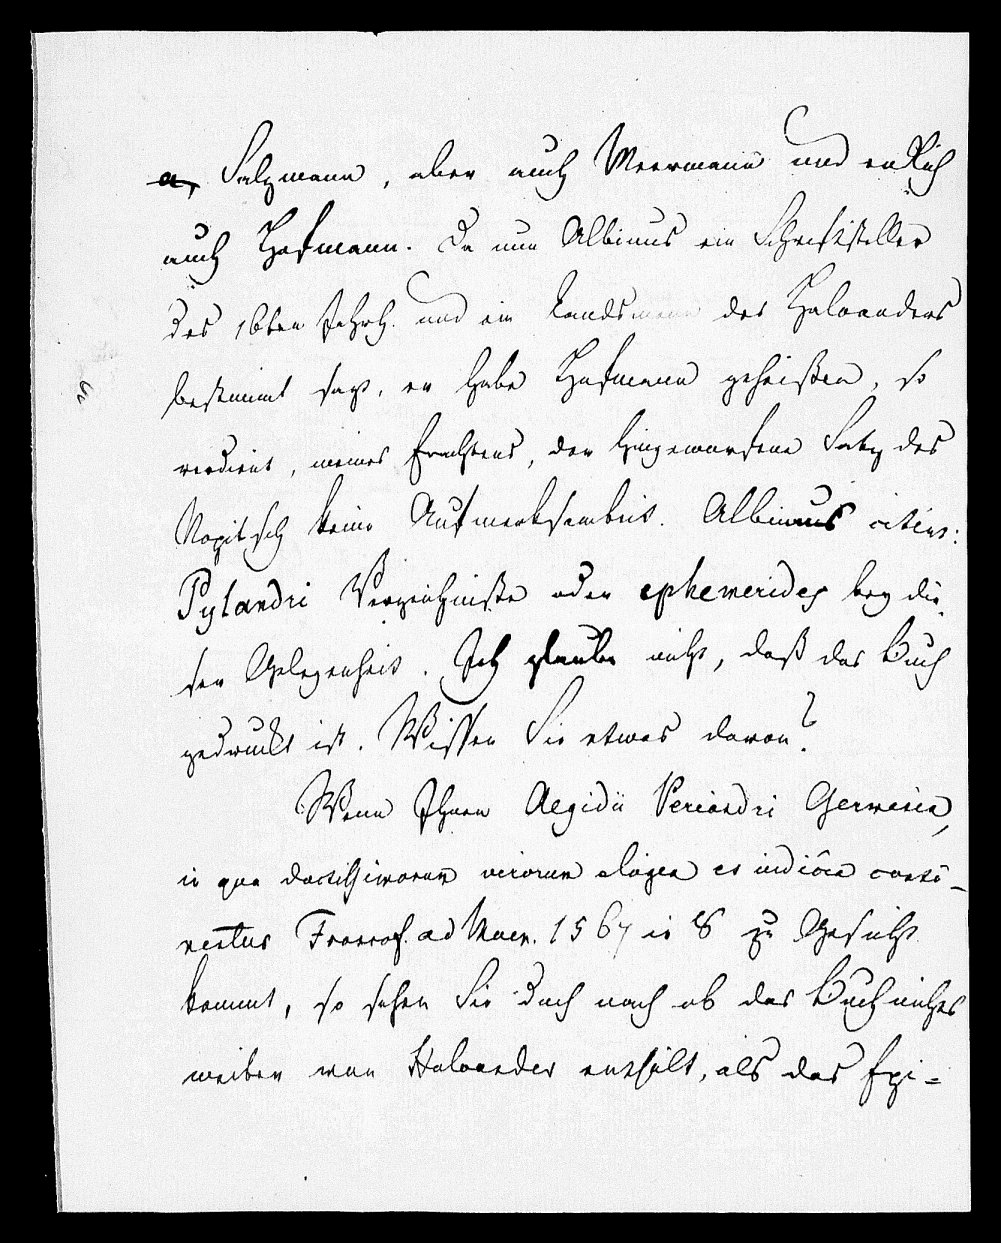 a, Salzmann, aber auch Meermann und endlich
auch Hofmann. Da nun Albinus ein Schriftsteller
des 16ten Jahrh. und ein Landsmann des Haloanders
bestimmt sagt, er habe Hofmann geheißen, so
verdient, meines Erachtens, der hingeworfene Satz des
Nopitsch keine Aufmerksamkeit. Albinus citirt:
Pylandri Verzeichniße oder ephemerides bey die-
ser Gelegenheit. Ich glaube nicht, daß das Buch
gedruckt ist. Wissen Sie etwas davon?
Wenn Ihnen Aegidii Periandri Germania,
in qua doctissimorum virorum elogia et iudicia conti-
nentur Francof. ad Moen. 1567 in 8 zu Gesicht
kommt, so sehen Sie doch nach ob das Buch nichts
weiter von Haloander enthält, als das Epi-